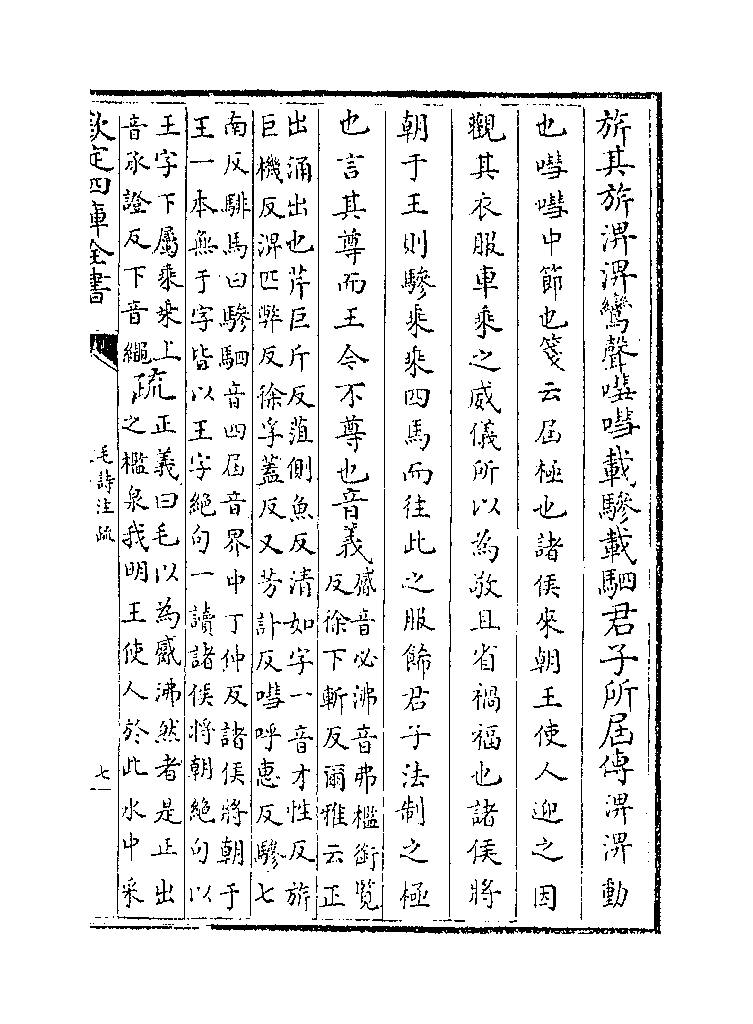 旂其旂淠淠鸞聲嘒嘒載驂載駟君子所屆傳淠淠動
也嘒嘒中節也箋云屆極也諸侯來朝王使人迎之因
觀其衣服車乗之威儀所以為敬且省禍福也諸侯將
朝于王則驂乗乗四馬而往此之服飾君子法制之極
也言其尊而王今不尊也音義
觱音必沸音弗檻銜覽
反徐下斬反爾雅云正
出涌出也芹巨斤反菹側魚反清如字一音才性反旂
巨機反淠匹弊反徐孚蓋反又芳計反嘒呼惠反驂七
南反騑馬曰驂駟音四屆音界中丁仲反諸侯將朝于
王一本無于字皆以王字絶句一讀諸侯將朝絶句以
王字下屬乗乗上
音承證反下音繩
疏
正義曰毛以為觱沸然者是正出
之檻泉我明王使人於此水中采
欽定四庫全書
毛詩注疏
七